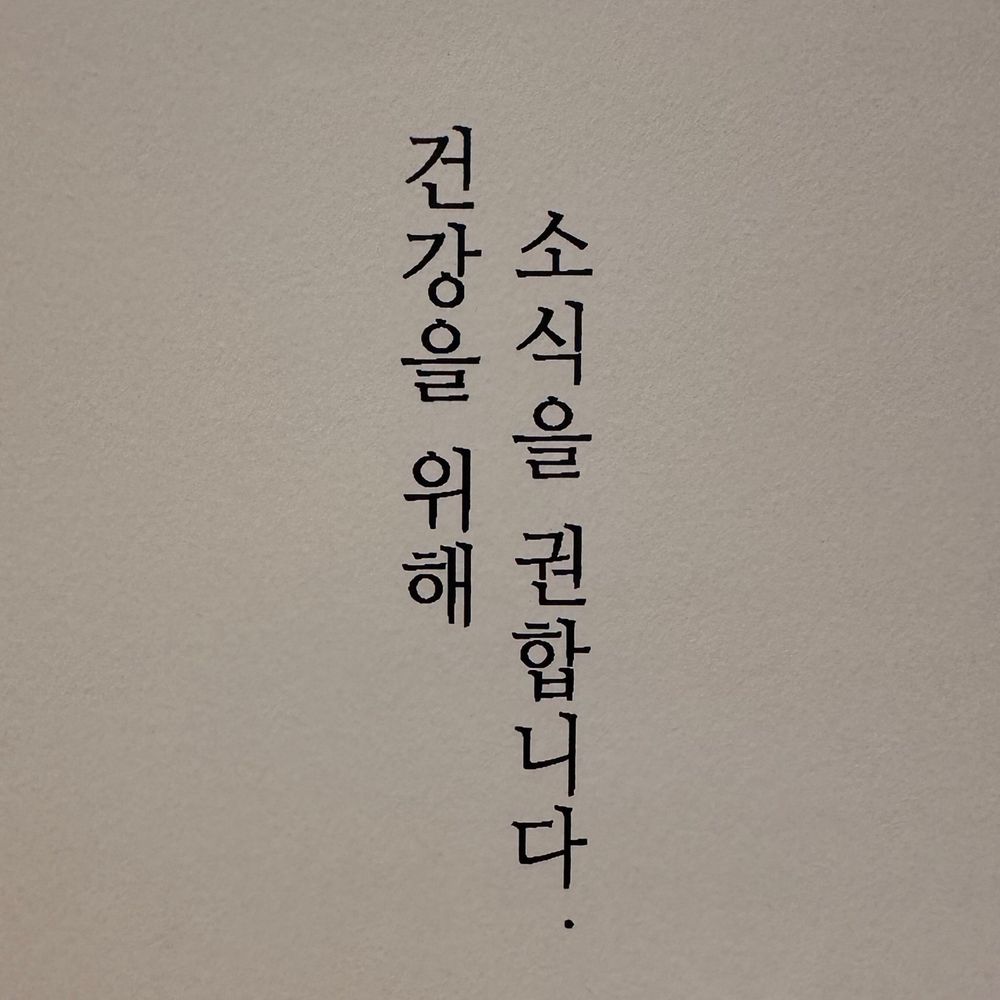 건강을 위해
소식을 권합니다.